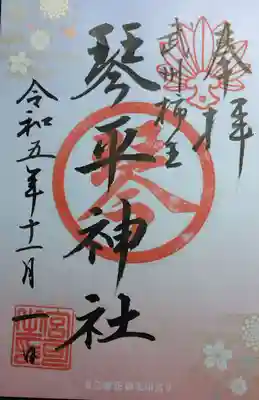 奉拝
武州柿生
琴平神社
令和五年十一月一日